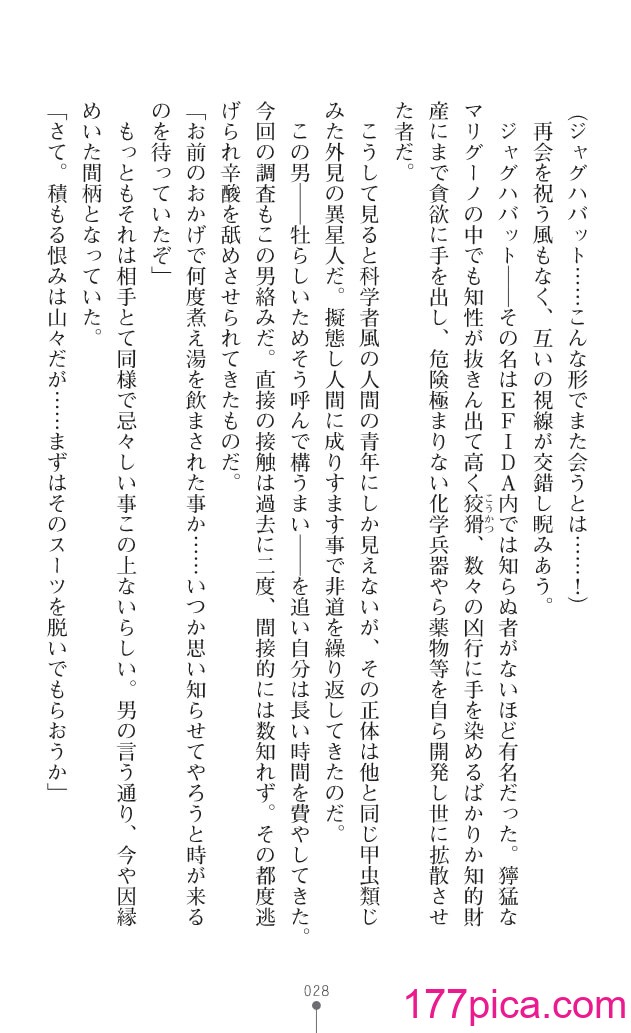 （ジャグハバット……こんな形でまた会うとは……！）
再会を祝う風もなく、互いの視線が交錯し睨みあう。
ジャグハバット――その名はＥＦＩＤＡ内では知らぬ者がないほど有名だった。獰猛な
マリグーノの中でも知性が抜きん出て高く狡猾、数々の凶行に手を染めるばかりか知的財
こうかつ
産にまで貪欲に手を出し、危険極まりない化学兵器やら薬物等を自ら開発し世に拡散させ
た者だ。
こうして見ると科学者風の人間の青年にしか見えないが、その正体は他と同じ甲虫類じ
みた外見の異星人だ。擬態し人間に成りすます事で非道を繰り返してきたのだ。
この男――牡らしいためそう呼んで構うまい――を追い自分は長い時間を費やしてきた。
今回の調査もこの男絡みだ。直接の接触は過去に二度、間接的には数知れず。その都度逃
げられ辛酸を舐めさせられてきたものだ。
「お前のおかげで何度煮え湯を飲まされた事か……いつか思い知らせてやろうと時が来る
のを待っていたぞ」
もっともそれは相手とて同様で忌々しい事この上ないらしい。男の言う通り、今や因縁
めいた間柄となっていた。
「さて。積もる恨みは山々だが……まずはそのスーツを脱いでもらおうか」
028
177pica.com